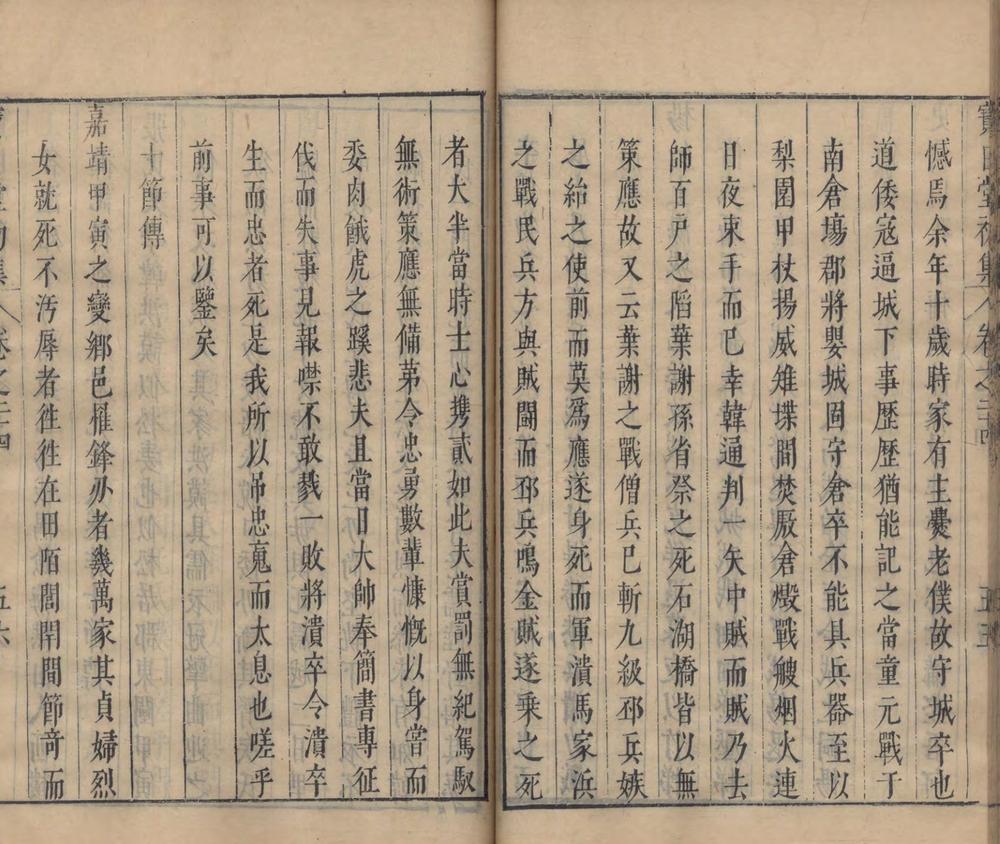 寶日堂初集 卷之二十四 五五
憾焉余年十歲時家有主爨老僕故守城卒也
道倭寇逼城下事歷歷猶能記之當童元戰于
南倉場郡將嬰城固守倉卒不能具兵器至以
梨園甲杖揚威雉堞間焚厫倉燬戰艘烟火連
日夜束手而已幸韓通判一矢中賊而賊乃去
師百戶之陷葉謝孫省祭之死石湖橋皆以無
策應故又云葉謝之戰僧兵已斬九級邳兵嫉
之紿之使前而莫為應遂身死而軍潰馬家浜
之戰民兵方與賊鬪而邳兵鳴金賊遂乘之死
者大半當時士心携貳如此夫賞罰無紀駕馭
無術策應無備第令忠勇數輩慷慨以身嘗而
委肉餓虎之蹊悲夫且當日大帥奉簡書專征
伐而失事見報噤不敢戮一敗將潰卒令潰卒
生而忠者死是我所以吊忠䰟而太息也嗟乎
前事可以鑒矣
十節傳
嘉靖甲寅之變鄉邑罹鋒刃者幾萬家其貞婦烈
女就死不汚辱者徃徃在田陌閭閈間節竒而
寶日堂初集 卷之二十四 五六